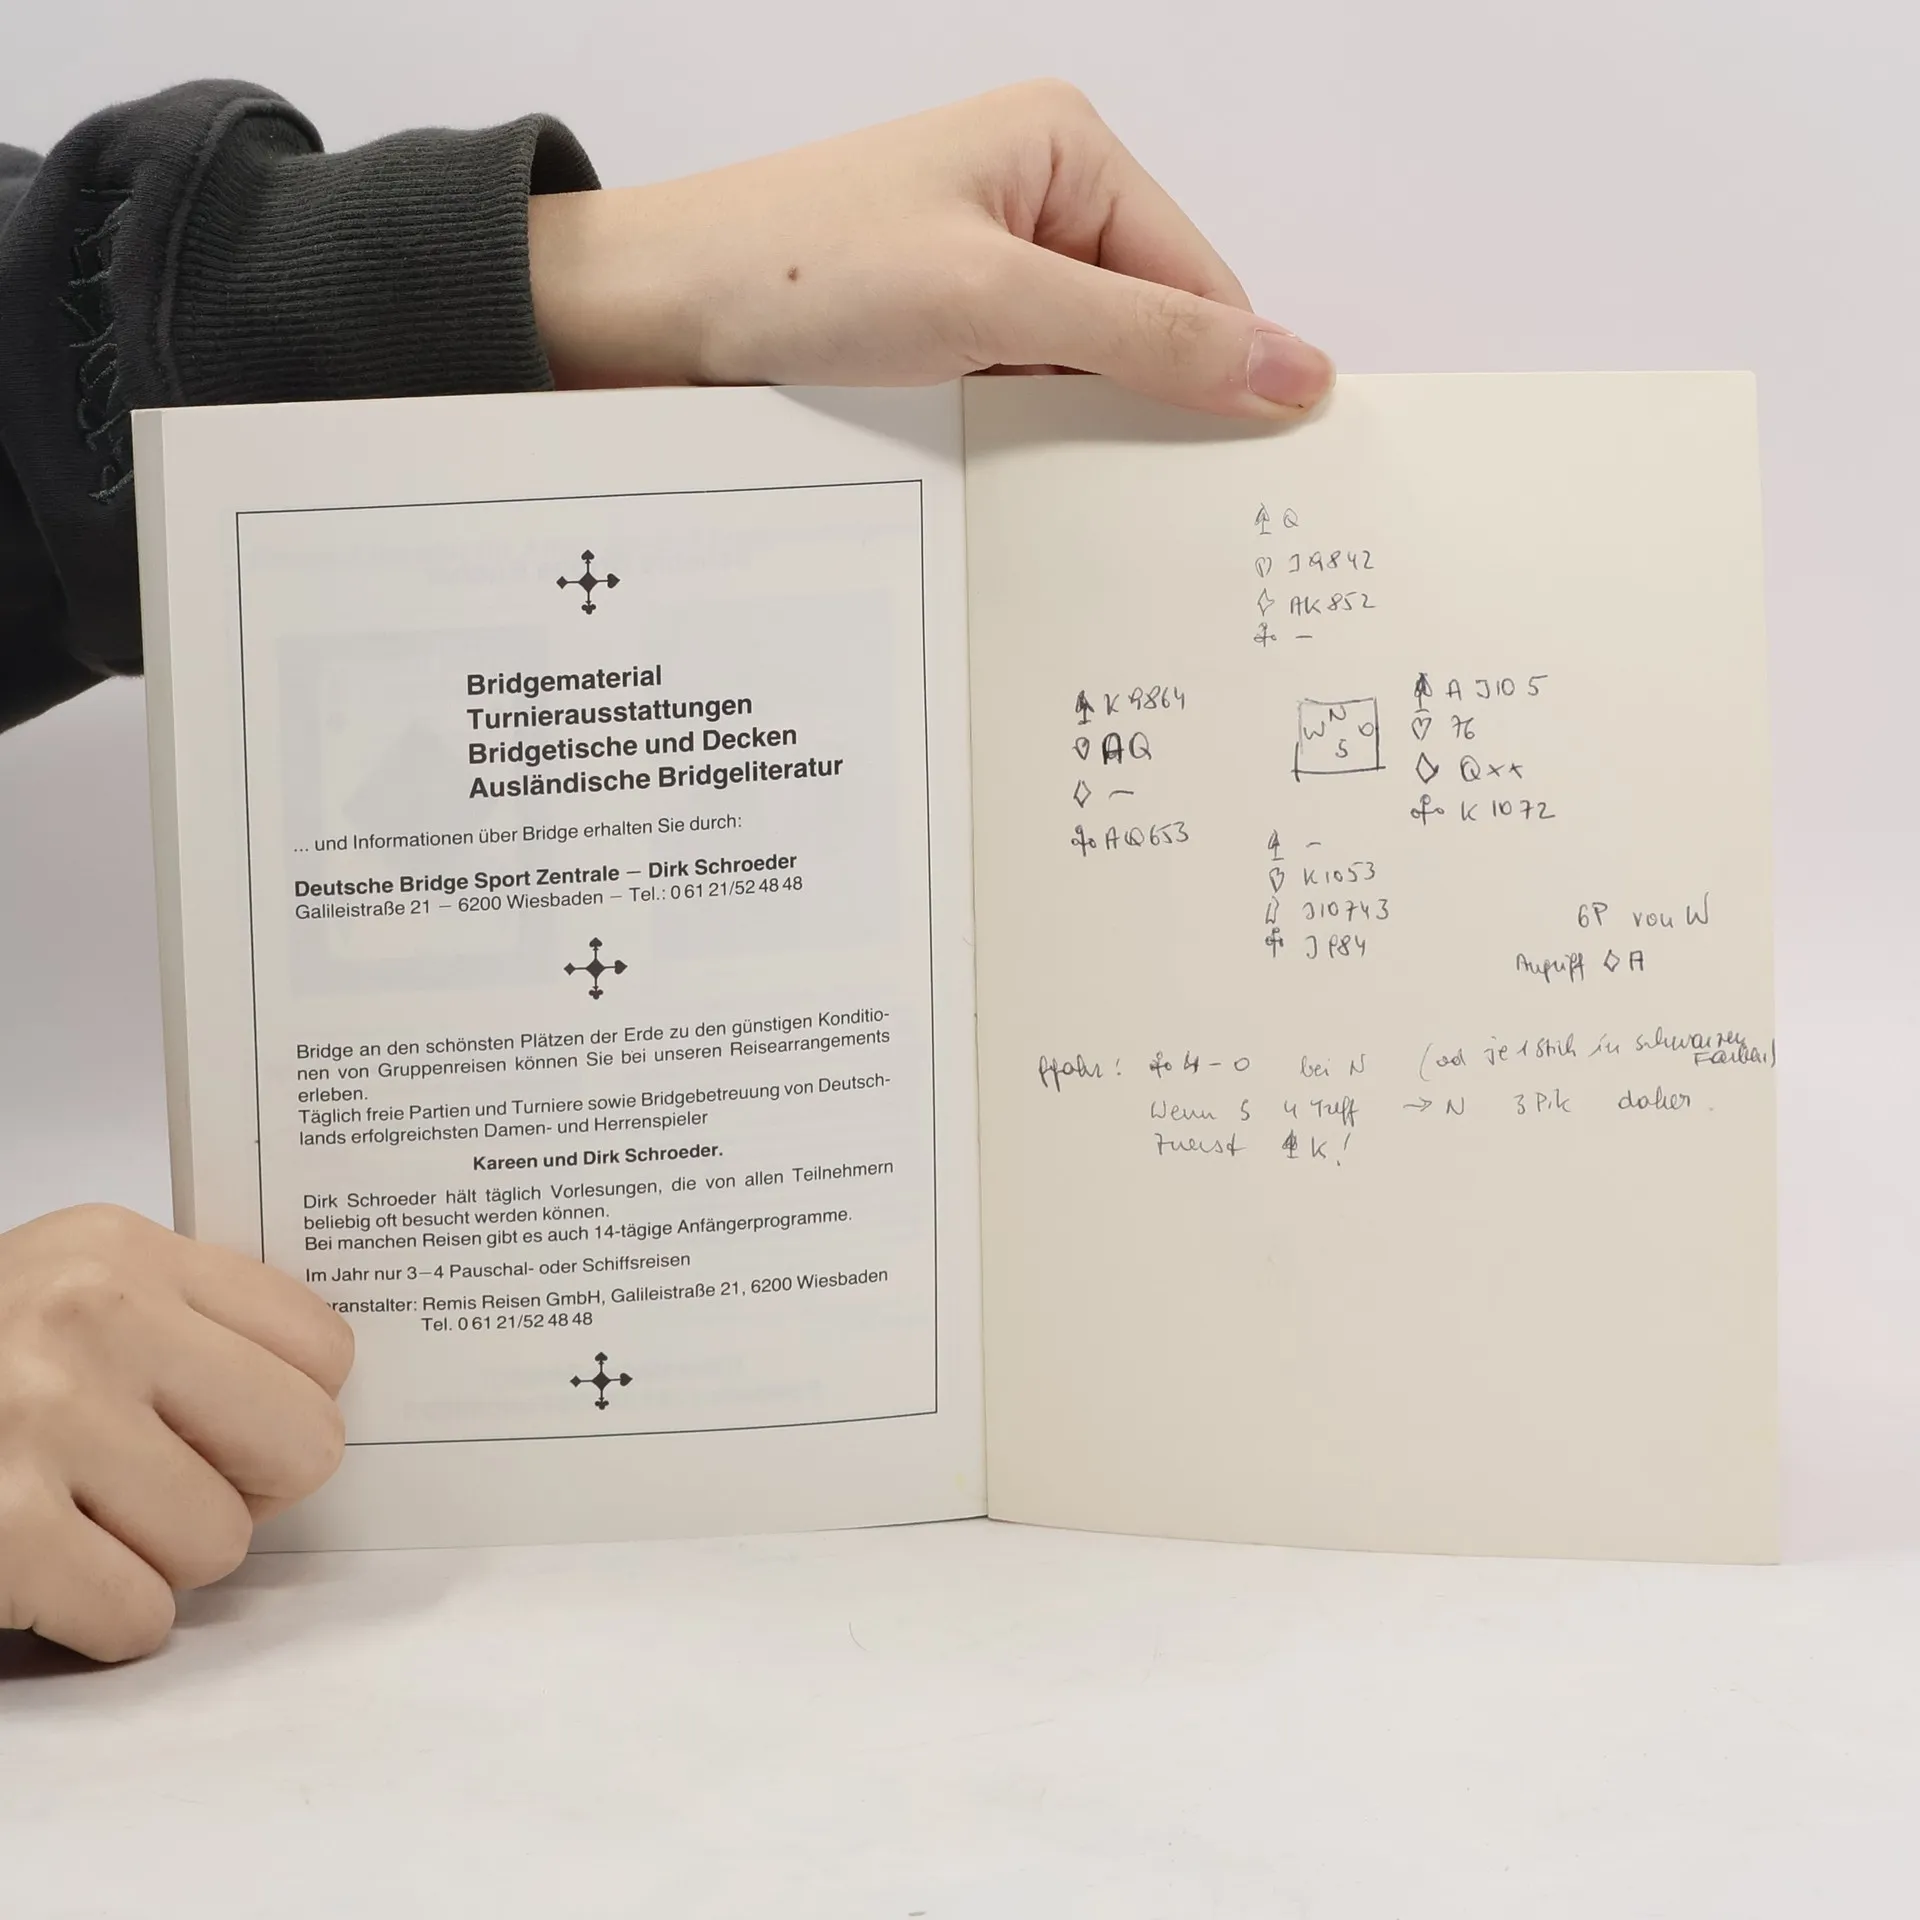 Bridgematerial
Turnierausstattungen
Bridgetische und Decken
Ausländische Bridgeliteratur
... und Informationen über Bridge erhalten Sie durch:
Deutsche Bridge Sport Zentrale – Dirk Schroeder
Galileistraße 21 – 6200 Wiesbaden – Tel.: 0 61 21/52 48 48
Bridge an den schönsten Plätzen der Erde zu den günstigen Konditio-
nen von Gruppenreisen können Sie bei unseren Reisearrangements
erleben.
Täglich freie Partien und Turniere sowie Bridgebetreuung von Deutsch-
lands erfolgreichsten Damen- und Herrenspieler
Kareen und Dirk Schroeder.
Dirk Schroeder hält täglich Vorlesungen, die von allen Teilnehmern
beliebig oft besucht werden können.
Bei manchen Reisen gibt es auch 14-tägige Anfängerprogramme.
Im Jahr nur 3–4 Pauschal- oder Schiffsreisen
ranstalter: Remis Reisen GmbH, Galileistraße 21, 6200 Wiesbaden
Tel. 0 61 21/52 48 48
♠ Q
♡ J9842
♢ AK852
♣ –
♠ K9864
♡ AQ
♢ –
♣ AQ653
N
W O
S
♠ A J10 5
♡ 76
♢ Qxx
♣ K 1072
♠ –
♡ K1053
♢ J10743
♣ J984
6P von W
Angriff ♢ A
♣ 4-0 bei N (od je 1 Stich in schwarzen
Farben)
Wenn S 4 Treff → N 3 Pik daher
zuerst ♠ K!